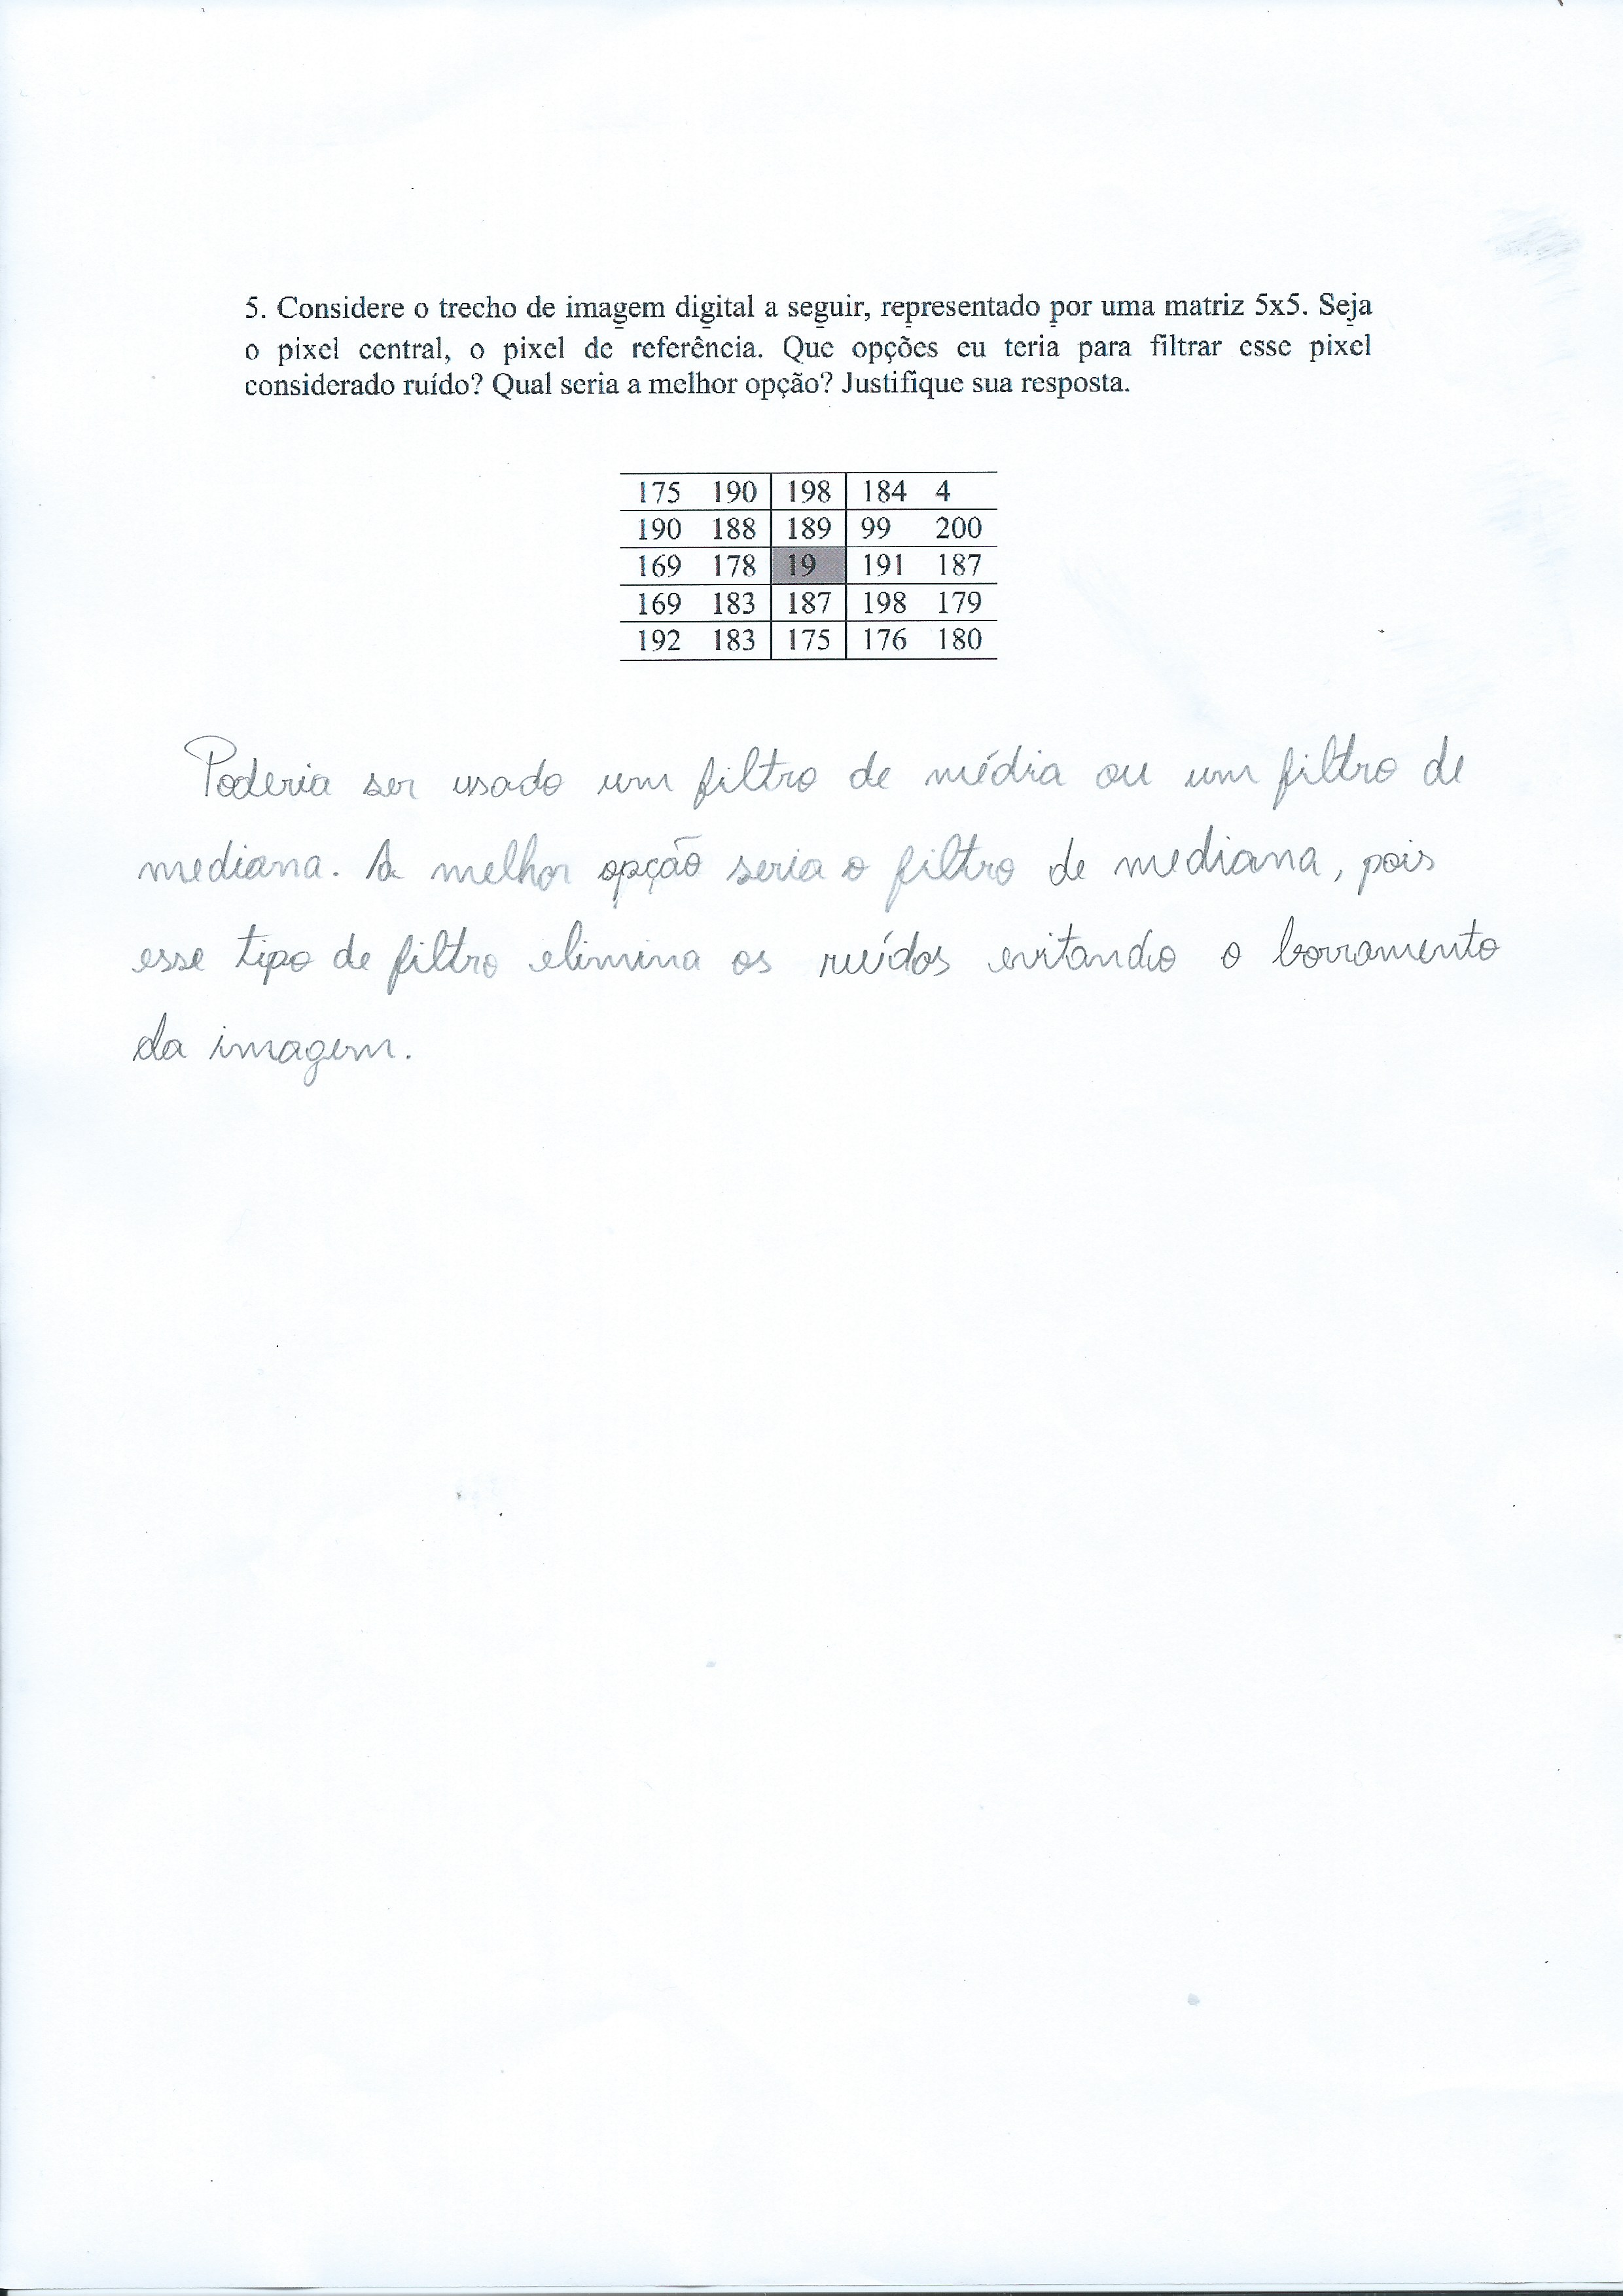 5. Considere o trecho de imagem digital a seguir, representado por uma matriz 5x5. Seja
o pixel central, o pixel de referência. Que opções eu teria para filtrar esse pixel
considerado ruído? Qual seria a melhor opção? Justifique sua resposta.
175 190 198 184 4
190 188 189 99 200
169 178 19 191 187
169 183 187 198 179
192 183 175 176 180
Poderia ser usado um filtro de média ou um filtro de
mediana. A melhor opção seria o filtro de mediana, pois
esse tipo de filtro elimina os ruídos evitando o borramento
da imagem.